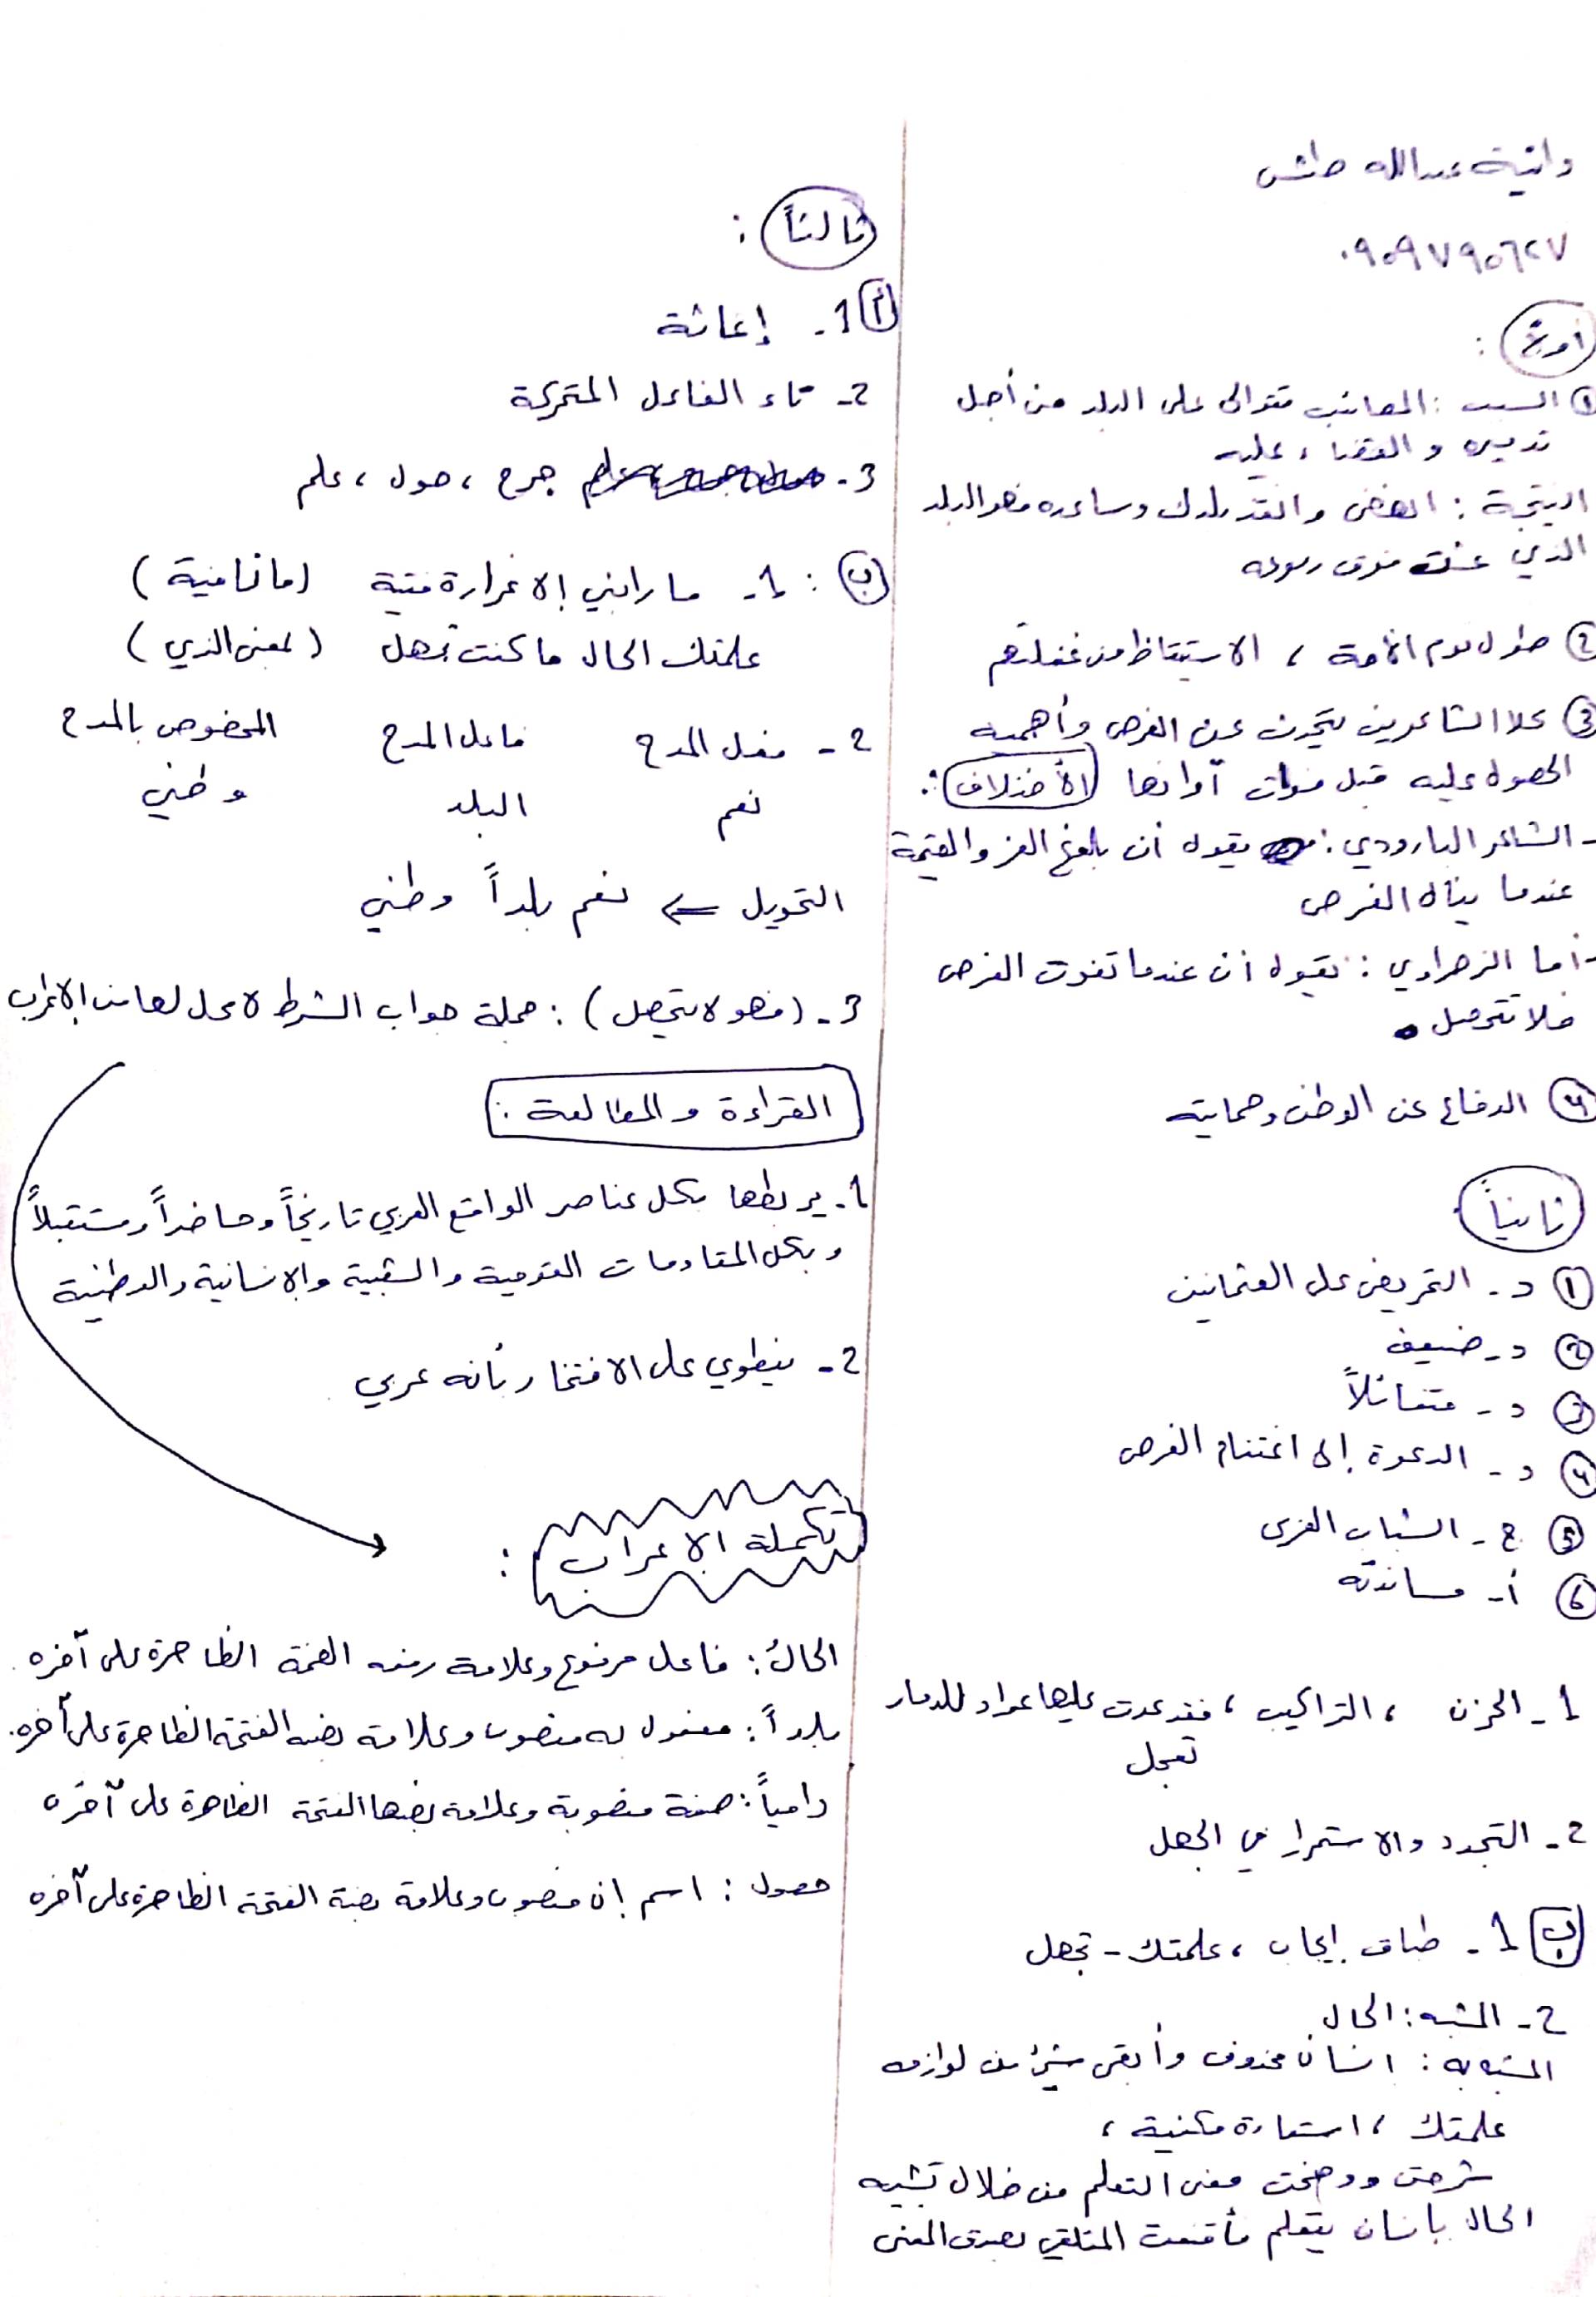 دانية عبدالله طالس
٠٩٥٩٧٩٥٦٢٧
أولاً :
① السبب : المصائب تتوالى على البلد من أجل
تدميره والقضاء عليه
النتيجة : انهض وانقذ بلدك وساعده فهو البلد
الذي عشت فوق ربوعه
② طول نوم الأمة ، الاستيقاظ من غفلتهم
③ كلا الشاعرين يتحدث عن الفرص وأهمية
الحصول عليه قبل فوات آوانها الأختلاف :
- الشاعر البارودي : يقول أن بلوغ العز والقيمة
عندما ينال الفرص
- أما الزهراوي : يقول أن عندما تفوت الفرص
فلا تتحصل .
④ الدفاع عن الوطن وحمايته
ثانياً
① د - التحريض على العثمانين
② د - ضعيف
③ د - متفائلاً
④ د - الدعوة إلى اغتنام الفرص
⑤ ج - الشباب العربي
⑥ أ - مساندته
1 - الحزن ، التراكيب ، فقد عدت عليها عواد للدمار
تعجل
2 - التجدد والاستمرار في الجهل
ب 1 - طباق إيجاب ، علمتك - تجهل
2 - المشبه : الحال
المشبه به : انسان محذوف وأبقى شيئ من لوازمه
علمتك ، استعارة مكنية ،
شرحت ووضحت معنى التعلم من خلال تشبيه
الحال بانسان يتعلم فأقنعت المتلقي بصدق المعنى
ثالثاً :
أ 1 - إغاثة
2 - تاء الفاعل المتحركة
3 - جرح ، حول ، علم
ب : 1 - ما رابني إلا غرارة فتية (ما نافية)
علمتك الحال ما كنت تجهل (بمعنى الذي)
2 - فعل المدح فاعل المدح المخصوص بالمدح
نعم البلد وطني
التحويل ⇐ نعم بلداً وطني
3 - (فهو لا يتحصل) : جملة جواب الشرط لا محل لها من الإعراب
القراءة والمطالعة :
1 - يربطها بكل عناصر الواقع العربي تاريخاً وحاضراً ومستقبلاً
وبكل المقاومات القومية والشعبية والإنسانية والوطنية
2 - ينطوي على الافتخار بأنه عربي
تكملة الاعراب :
الحالُ : فاعل مرفوع وعلامة رفعه الضمة الظاهرة على آخره .
بلداً : مفعول به منصوب وعلامة نصبه الفتحة الظاهرة على آخره .
دامياً : صفة منصوبة وعلامة نصبها الفتحة الظاهرة على آخره
حصول : اسم إن منصوب وعلامة نصبة الفتحة الظاهرة على آخره